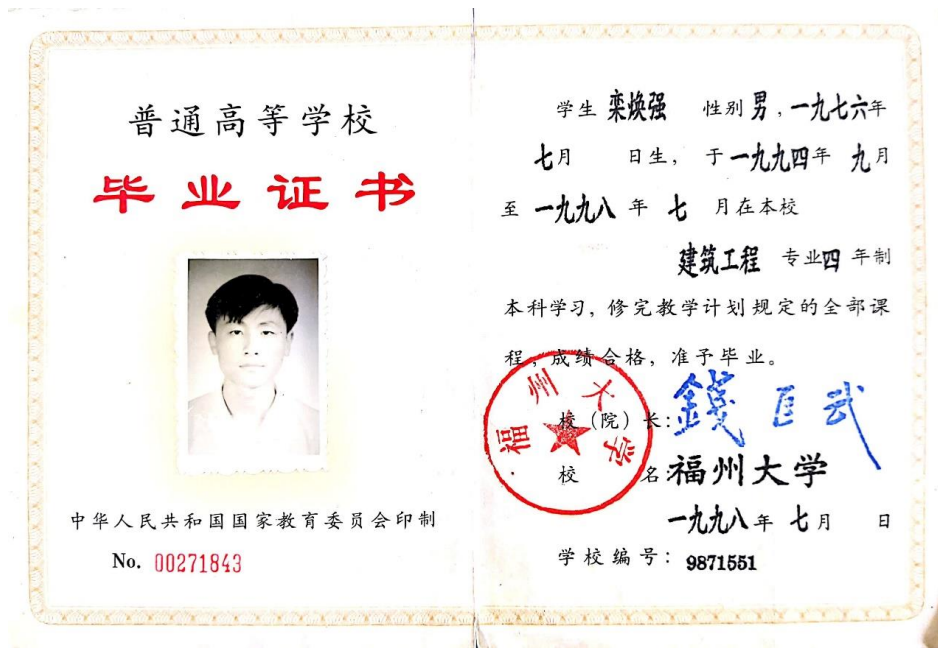 普通高等学校
毕业证书
中华人民共和国国家教育委员会印制
No. 00271843
学生 栾焕强 性别 男，一九七六年
七月 日生，于一九九四年 九月
至 一九九八 年 七 月在本校
建筑工程 专业四 年制
本科学习，修完教学计划规定的全部课
程，成绩合格，准予毕业。
校（院）长：錢匡武
校 名：福州大学
一九九八年 七月 日
学校编号：9871551
福州大学